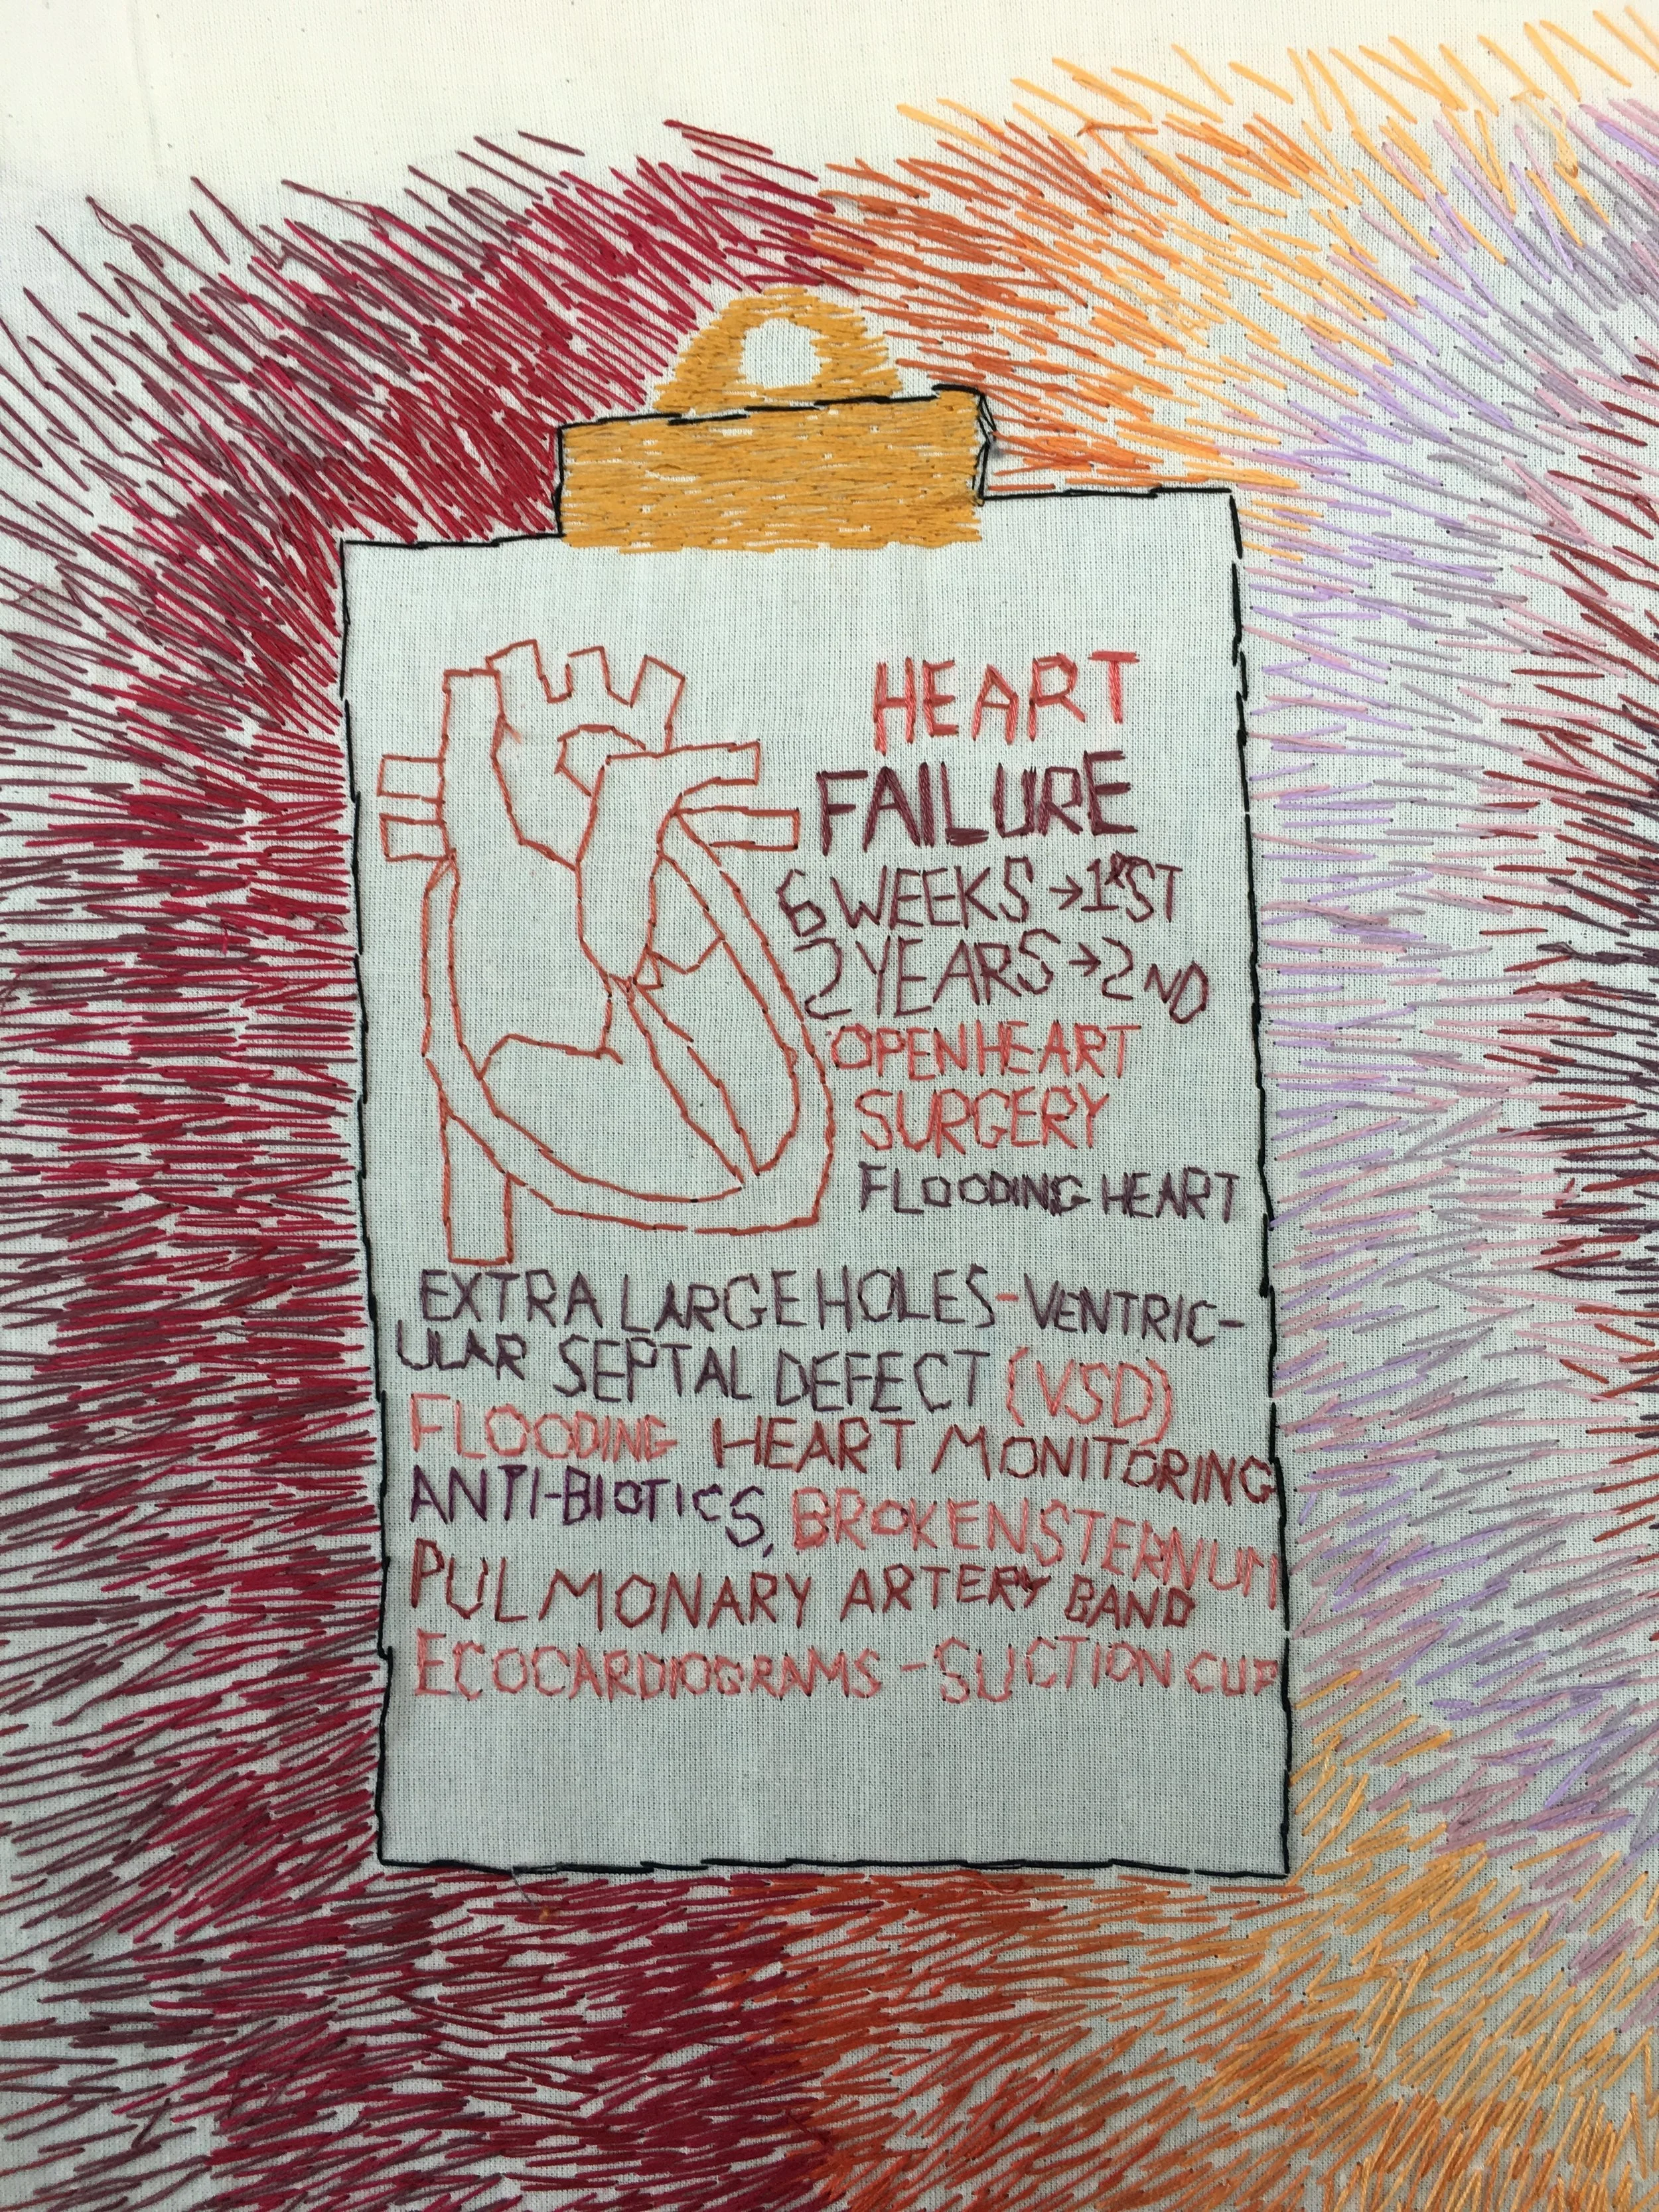 HEART
FAILURE
6 WEEKS → 1ST
2 YEARS → 2ND
OPEN HEART
SURGERY
FLOODING HEART
EXTRA LARGE HOLES - VENTRIC-
ULAR SEPTAL DEFECT (VSD)
FLOODING HEART MONITORING
ANTI-BIOTICS, BROKEN STERNUM
PULMONARY ARTERY BAND
ECOCARDIOGRAMS - SUCTION CUP